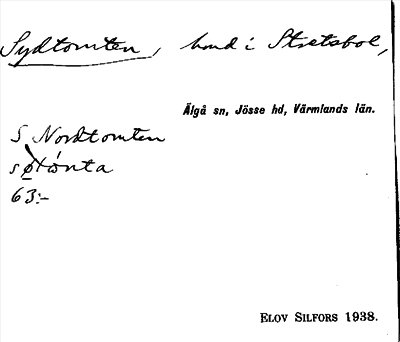 Sydtomten, hmd i Stretsbol,
Älgå sn, Jösse hd, Värmlands län.
S Nordtomten
63:-
ELOV SILFORS 1938.